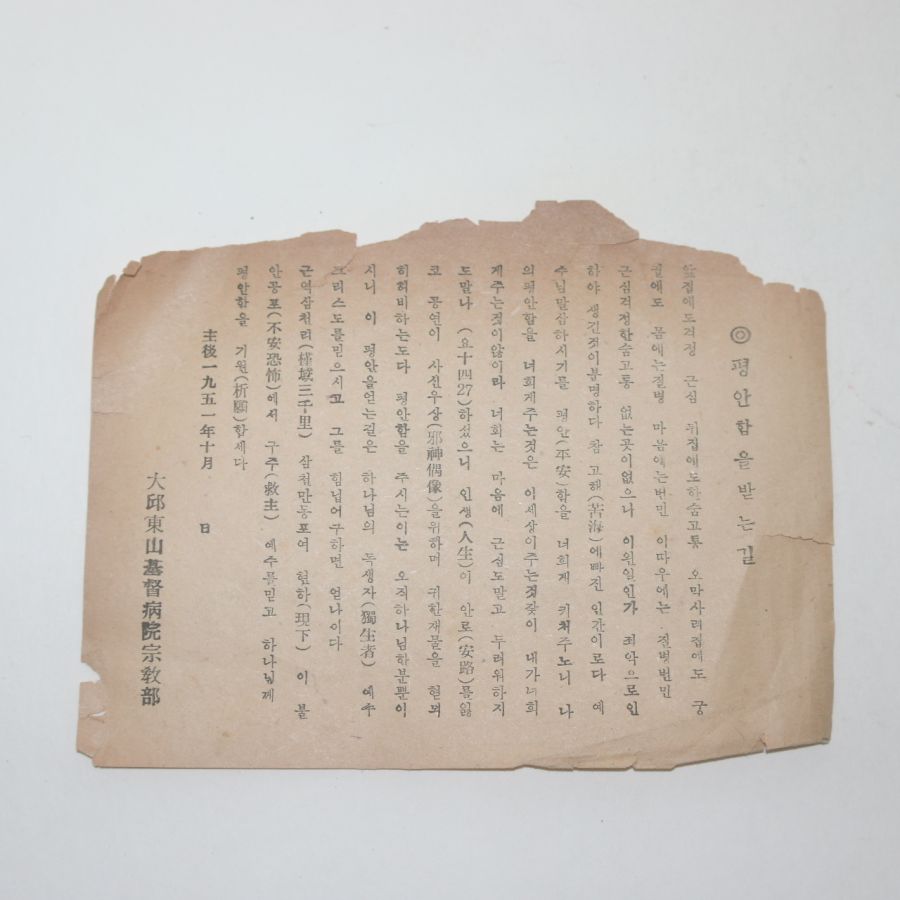 ◎ 평안함을받는길
앞집에도걱정 근심 뒤집에도한숨고통 오막사리집에도 궁
궐에도 몸에는질병 마음에는번민 이따우에는 질병번민
근심걱정한숨고통 없는곳이없으나 이원일인가 죄악으로인
하야 생긴것이분명하다 참 고해(苦海)에빠진 인간이로다 예
주님말삼하시기를 평안(平安)함을 너희게 끼처주노니 나
의평안함을 너희게주는것은 이세상이주는것갗이 내가너희
게주는것이않이라 너희는 마음에 근심도말고 두려워하지
도말나 (요十四27)하섰으니 인생(人生)이 안로(安路)를잃
코 공연이 사신우상(邪神偶像)을위하며 귀한재물을 헏되
히허비하는도다 평안함을 주시는이는 오직하나님한분뿐이
시니 이 평안을얻는길은 하나님의 독생자(獨生者) 예수
크리스도를믿으시고 그를 힘닙어구하면 얻나이다
근역삼천리(槿域三千里) 삼천만동포여 현하(現下) 이 불
안공포(不安恐怖)에서 구주(救主) 예수를믿고 하나님께
평안함을 기원(祈願)합세다
主後一九五一年十月 日
大邱東山基督病院宗敎部